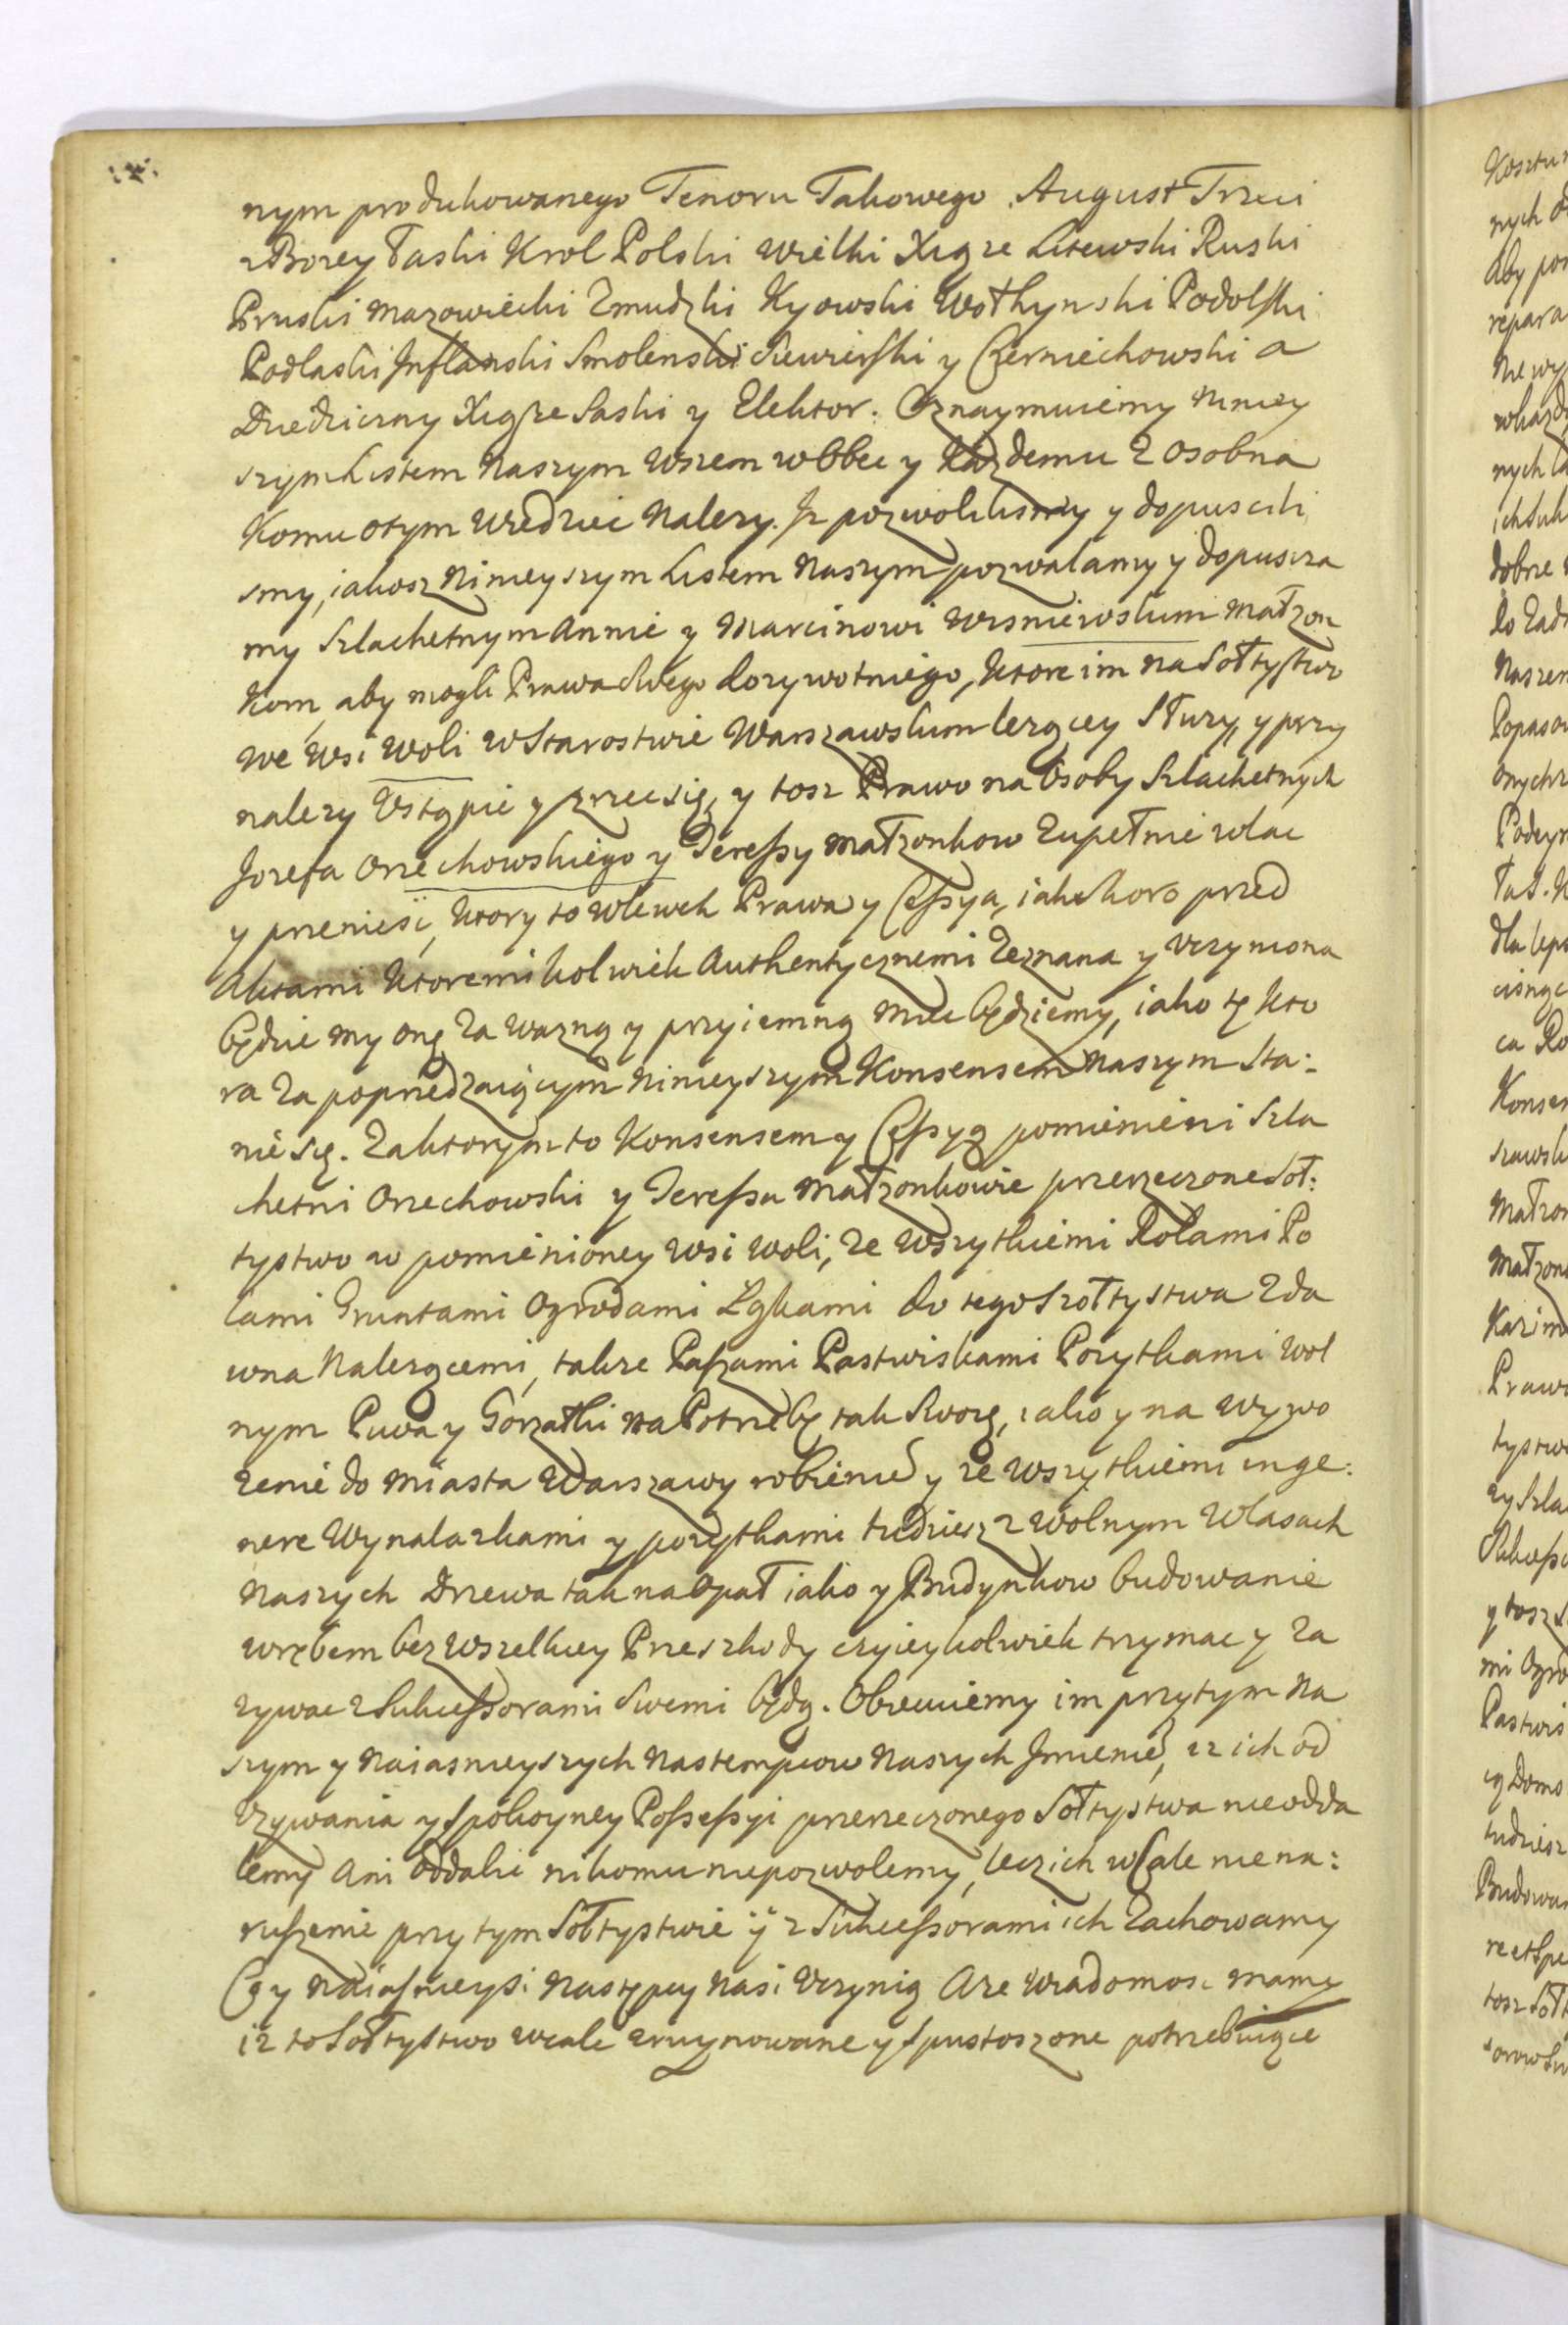 nym produkowanego Tenoru Takowego. August Trzeci
z Bozey Łaski Krol Polski Wielki Xiąze Litewski Ruski
Pruski Mazowiecki Zmudzki Kyowski Wołhynski Podolski
Podlaski Inflanski Smolenski Siewierski y Czerniechowski a
Dziedziczny Xiąze Saski y Elektor. Oznaymuiemy Niniey
szym Listem Naszym Wszem wobbec y Kazdemu z osobna
Komu o tym Wiedziec Nalezy. Iz pozwolilismy y dopuscili
smy, iakosz Ninieyszym Listem Naszym pozwalamy y dopuscza
my Szlachetnym Annie y Marcinowi Wisniewskim Małzon
kom, aby mogli Prawa Swego dozywotniego, ktore im na Sołtystwo
we Wsi Woli w Starostwie Warszawskim lezącey Słuzy, y przy
nalezy Ustąpic y zrzec się, y tosz Prawo na Osoby Szlachetnych
Jozefa Orzechowskiego y Teressy Małzonkow Zupełnie wlac
y przeniesc, ktory to wlewek Prawa y Cessya, iak skoro przed
Aktami ktoremi kolwiek Authentycznemi Zeznana y Uczyniona
będzie my onę za wazną y przyiemną miec będziemy, iako tę kto
ra za poprzedzaiącym Ninieyszym Konsensem Naszym Sta:
nie się. Za ktorym to Konsensem y Cessyą pomienieni Szla
chetni Orzechowski y Teressa Małzonkowie przerzeczone Soł:
tystwo w pomienioney Wsi Woli, ze Wszytkiemi Rolami Po
lami Gruntami Ogrodami Łąkami do tego Szołtystwa Zda
wna Nalezącemi, takze Paszami Pastwiskami Pozytkami Wol
nym Piwa y Gorzałki na Potrzebę tak Swoię, iako y na Wywo
zenie do Miasta Warszawy robieniem y ze wszytkiemi in ge:
nere Wynalazkami y pozytkami tudziesz z wolnym W lasach
Naszych Drzewa tak na Opał iako y Budynkow budowanie
wrębem bez wszelkiey Przeszkody czyieykolwiek trzymac y za
zywac z Sukcessorami Swemi będą. Obiecuiemy im przytym Na
szym y Naiasnieyszych Nastempcow Naszych Imieniem, iz ich od
Uzywania y spokoyney Possessyi przerzeczonego Sołtystwa nie odda
lemy ani Oddalic nikomu niepozwolemy, lecz ich w Cale niena:
ruszenie przy tym Sołtystwie ÿ z Sukcessorami ich Zachowamy
Co y Naiasnieysi Następcy Nasi Uczynią. A ze Wiadomosc mamy
iz to Sołtystwo wcale zruynowane y spustoszone potrzebuiące